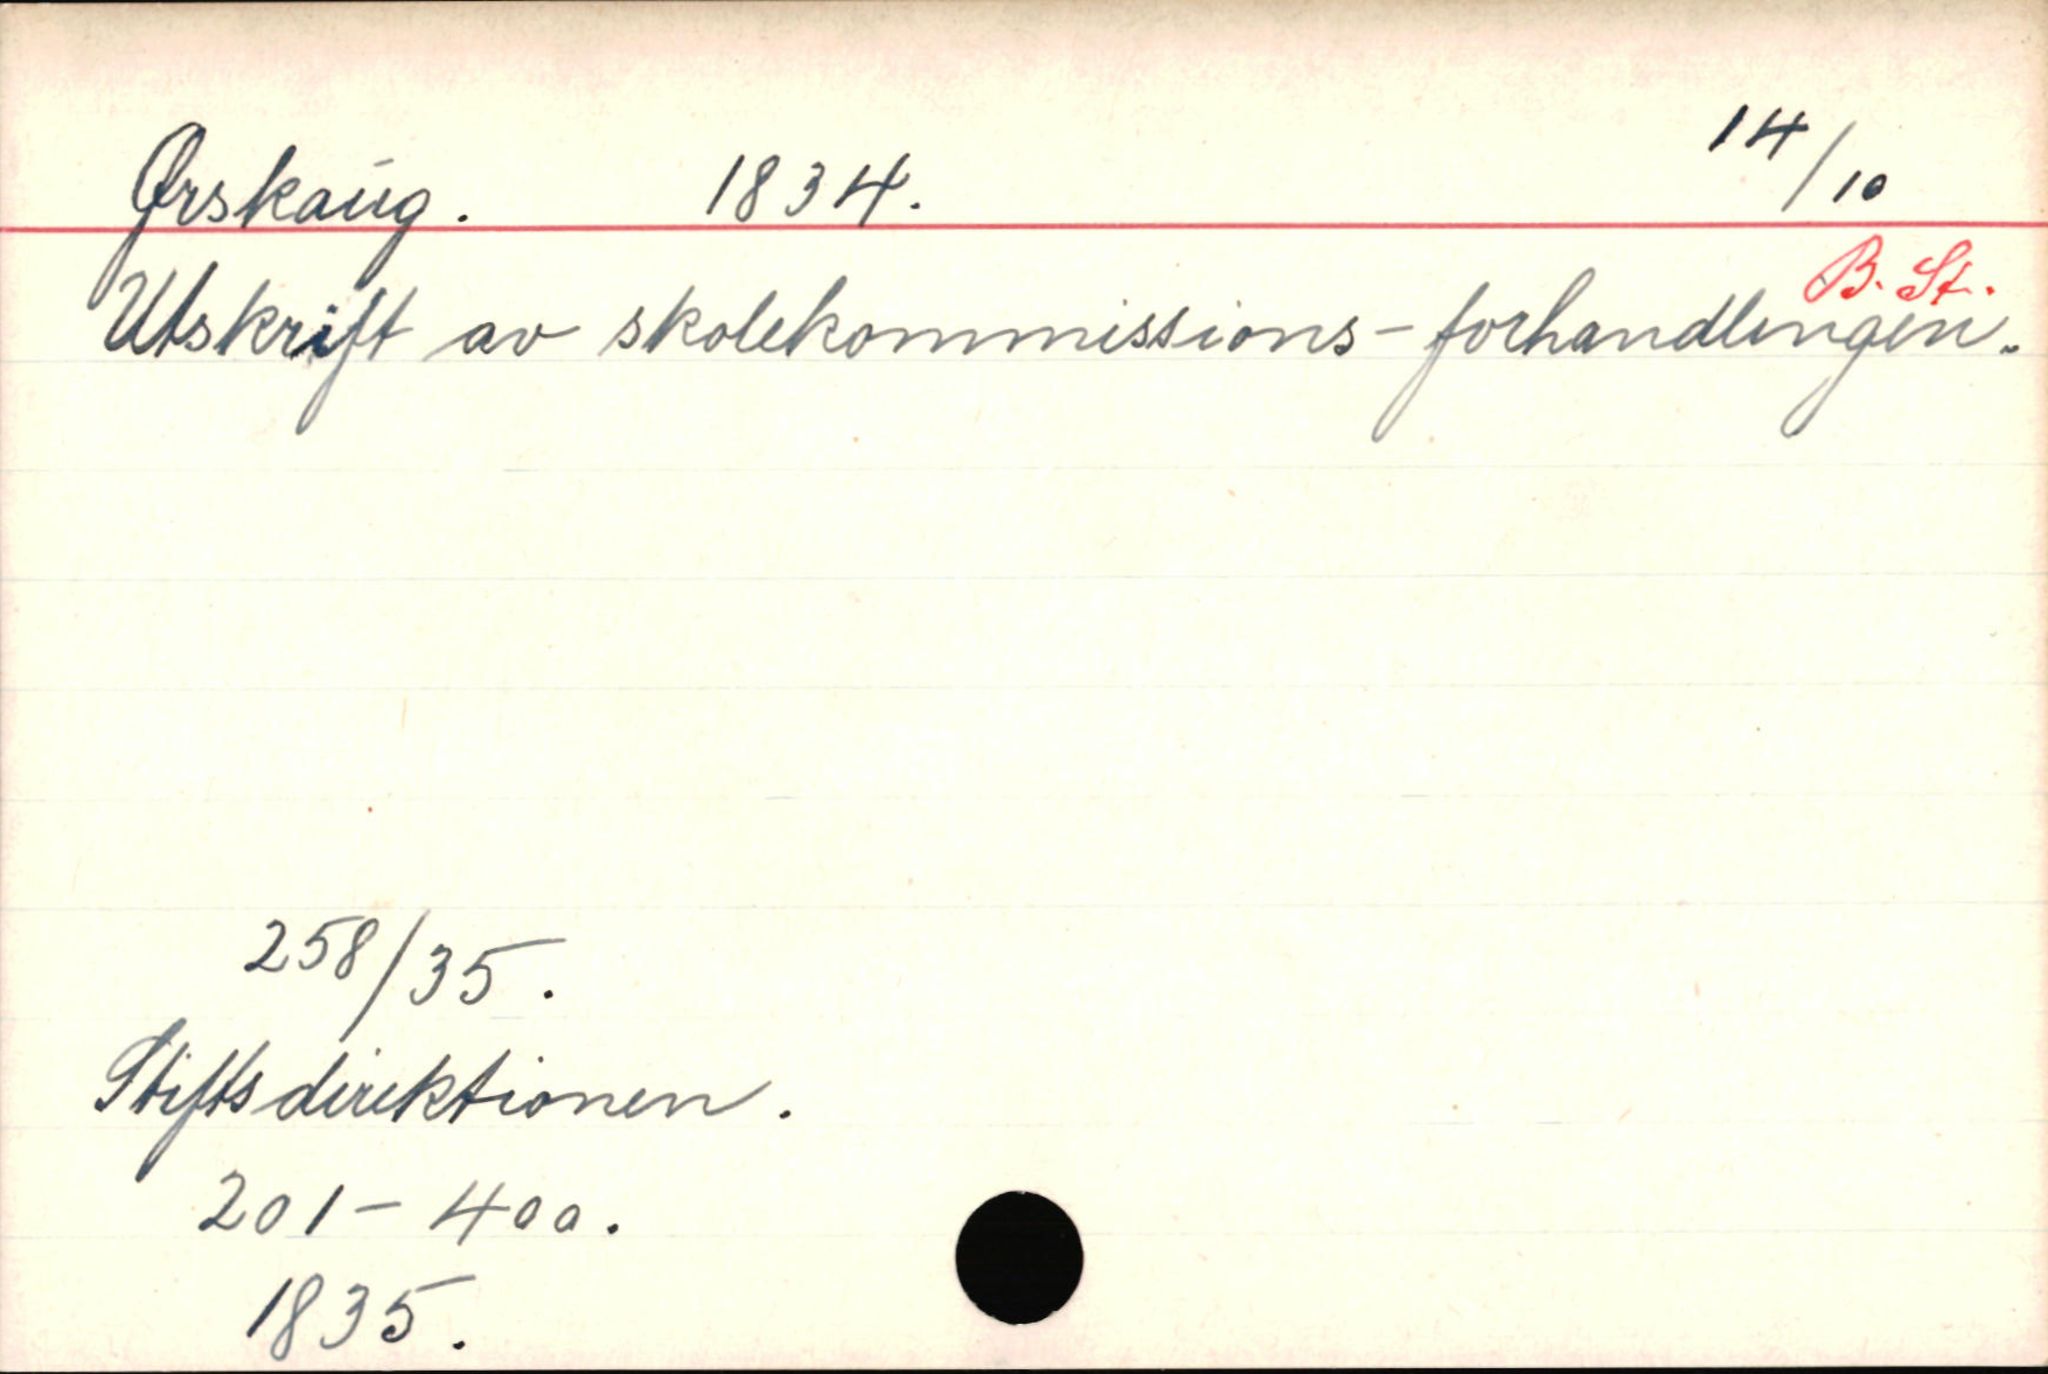 Ørskaug. 1834. 14/10
B. St.
Utskrift av skolekommissions-forhandlingen.
258/35.
Stiftsdirektionen.
201-400.
1835.